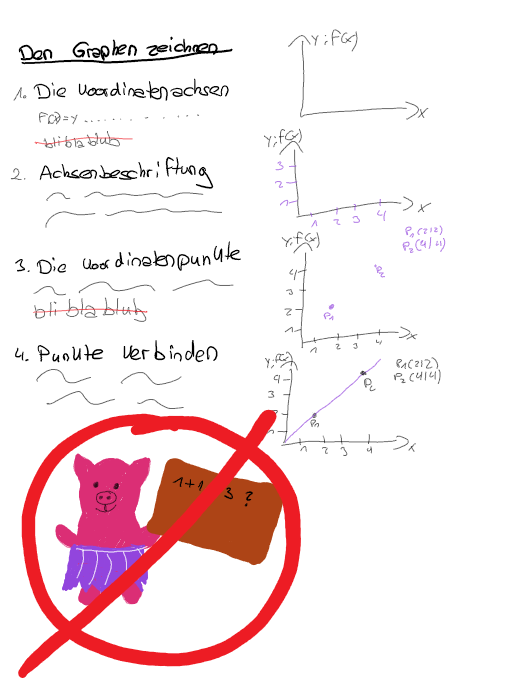 Den Graphen zeichnen
1. Die Koordinatenachsen
F(x)=y ...........
bli bla blub
2. Achsenbeschriftung
3. Die Koordinatenpunkte
bli bla blub
4. Punkte verbinden
y; f(x)
x
y; f(x)
3
2
1
1 2 3 4
x
P1 (2|2)
P2 (4|4)
y; f(x)
4
3
2
1
P2
P1
1 2 3 4
x
y; f(x)
4
3
P1 (2|2)
P2 (4|4)
P2
P1
1 2 3 4
x
3 ?